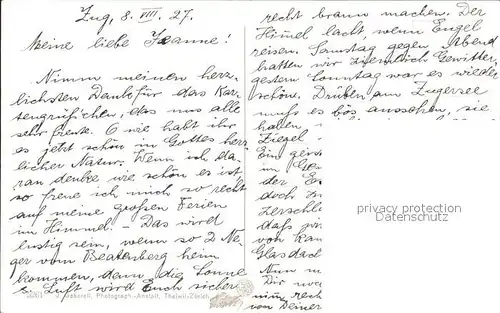 Zug, 8. VIII. 27.
Meine liebe Jeanne!
Nimm meinen herz-
lichsten Dank für das Kar-
tengrüsschen, das uns alle
sehr freute. O wie habt ihr
es jetzt schön in Gottes herr-
licher Natur. Wenn ich da-
ran denke wie schön es ist
so freue ich mich so recht
auf meine großen Ferien
im Himmel. - Das wird
lustig sein, wenn so 2 Ne-
ger vom Beatenberg heim
kommen, denn die Sonne
& Luft wird Euch sicher
Gaberell, Photograph.-Anstalt, Thalwil-Zürich
recht braun machen. Der
Himmel lacht, wenn Engel
reisen. Samstag gegen Abend
hatten wir ziemlich Gewitter,
gestern Sonntag war es wieder
schön. Drüben am Zugersee
muss es bös aussehen, sie
haben
Ziegel
Ein
im
der
doch
zerschla
daß
von
Glasdach
Nun
Dir
recht
von Deiner
privacy protection
Datenschutz